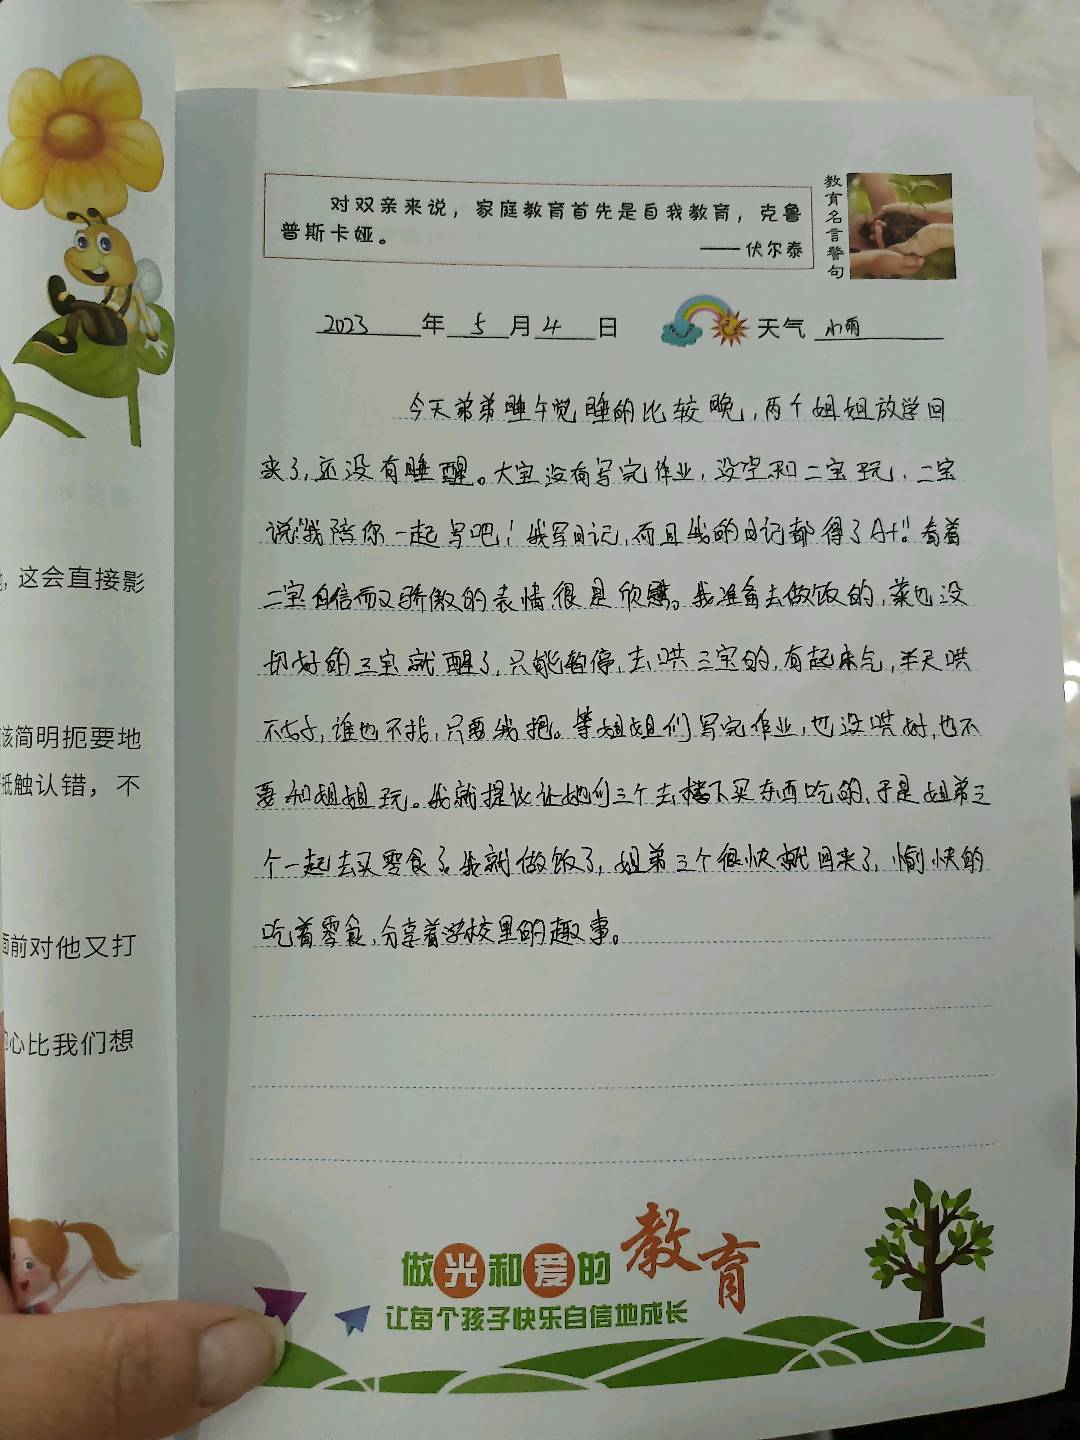 对双亲来说，家庭教育首先是自我教育，克鲁
普斯卡娅。
——伏尔泰
教育名言警句
2023年5月4日
天气 小雨
今天弟弟睡午觉睡的比较晚，两个姐姐放学回
来了，还没有睡醒。大宝没有写完作业，没空和二宝玩，二宝
说："我陪你一起写吧！我写日记，而且我的日记都得了A+"。看着
二宝自信而又骄傲的表情很是欣慰。我准备去做饭的，菜也没
切好的三宝就醒了，只能暂停，去哄三宝的，有起床气，半天哄
不好，谁也不找，只要我抱。等姐姐们写完作业，也没哄好，也不
要和姐姐玩。我就提议让她们三个去楼下买东西吃的，于是姐弟三
个一起去买零食了。我就做饭了，姐弟三个很快就回来了，愉快的
吃着零食，分享着学校里的趣事。
这会直接影
该简明扼要地
抵触认错，不
面前对他又打
心比我们想
做光和爱的教育
让每个孩子快乐自信地成长